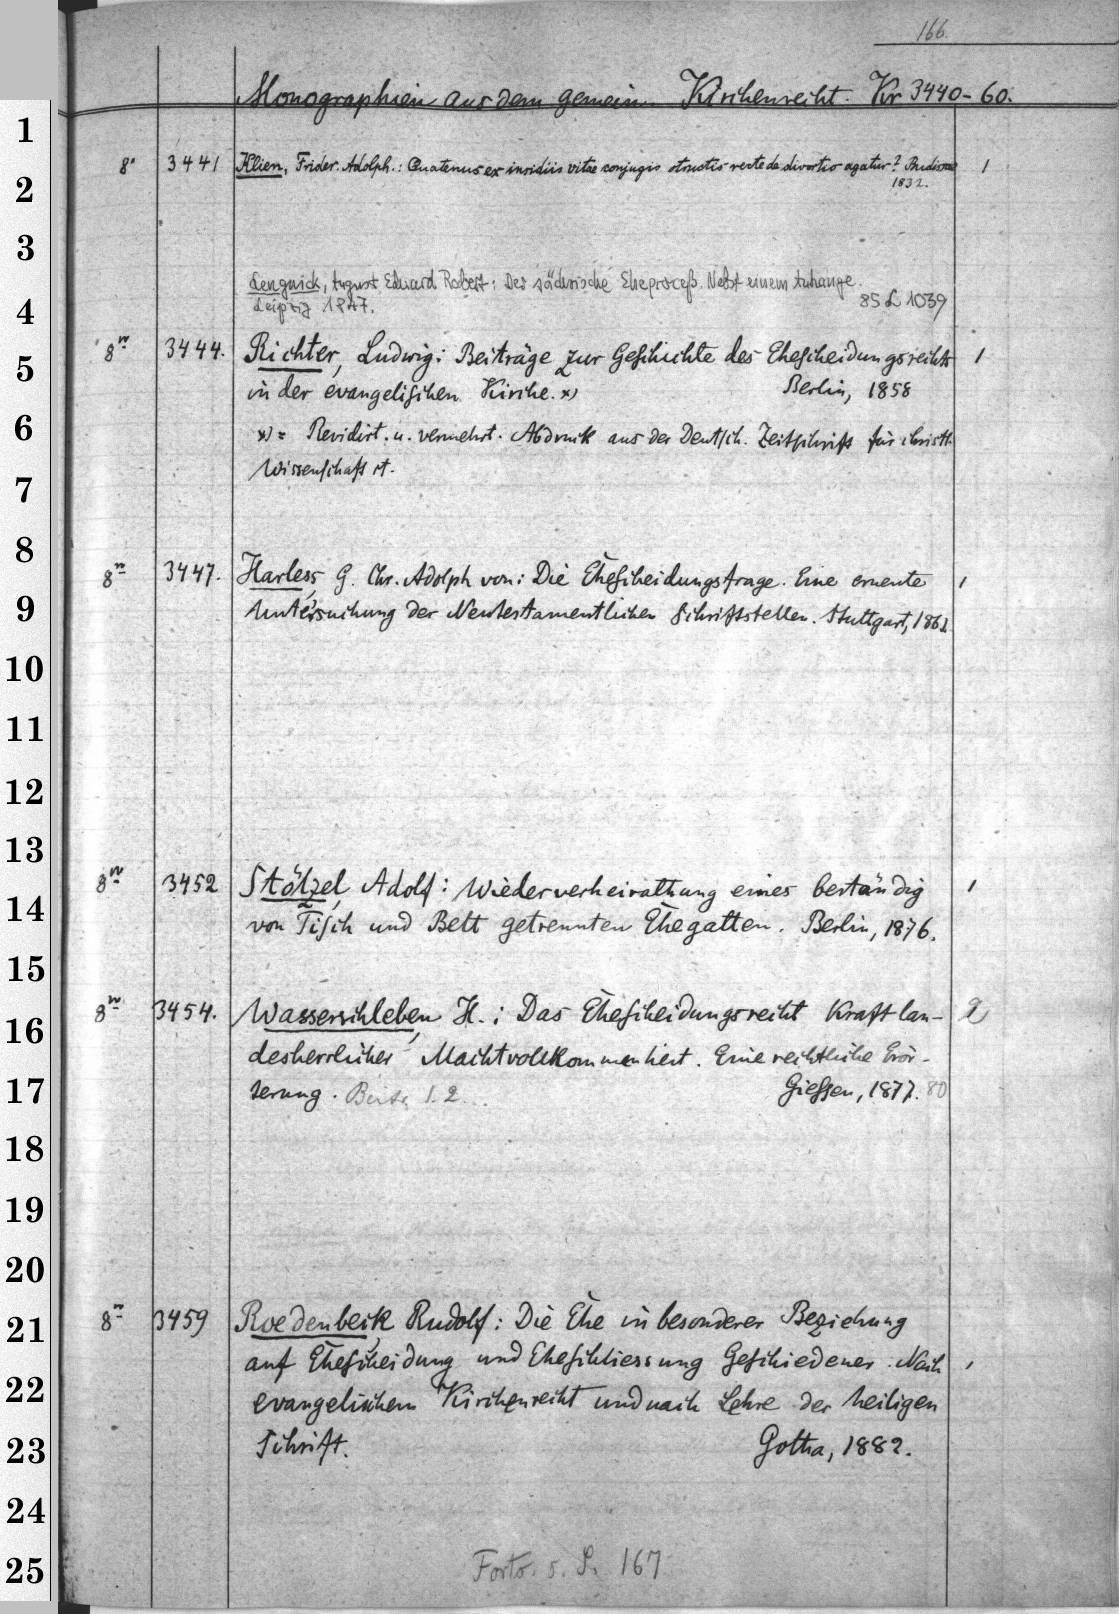 166.
Monographien aus dem gemein. Kirchenrecht. Kr 3440-60.
1
8° 3441 Klien, Frider. Adolph.: Quatenus ex insidiis vitae conjugis structis recte de divortio agatur? Budissae 1
1832.
2
3
Lengnick, August Eduard Robert: Der sächsische Eheproceß. Nebst einem Anhange.
Leipzig 1847. 85 L 1039
4
8n 3444. Richter, Ludwig: Beiträge zur Geschichte des Ehescheidungsrechts 1
5
in der evangelischen Kirche. x) Berlin, 1858
6
x) = Revidirt. u. vermehrt. Abdruck aus der Deutsch. Zeitschrift für christl.
Wissenschaft rt.
7
8
8n 3447. Harless, G. Chr. Adolph von: Die Ehescheidungsfrage. Eine erneute 1
9
Untersuchung der Neutestamentlichen Schriftstellen. Stuttgart, 1861
10
11
12
13
8n 3452 Stölzel, Adolf: Wiederverheirathung eines beständig 1
14
von Tisch und Bett getrennten Ehegatten. Berlin, 1876.
15
8n 3454. Wasserschleben, H.: Das Ehescheidungsrecht Kraft lan- 2
16
desherrlicher Machtvollkommenheit. Eine rechtliche Erör-
17
terung. 1. 2. Giessen, 1877. 80
18
19
20
8n 3459 Roedenbeck, Rudolf: Die Ehe in besonderer Beziehung
21
auf Ehescheidung und Eheschliessung Geschiedener. Nach 1
22
evangelischem Kirchenrecht und nach Lehre der heiligen
23
Schrift. Gotha, 1882.
24
25
Forts. s. S. 167